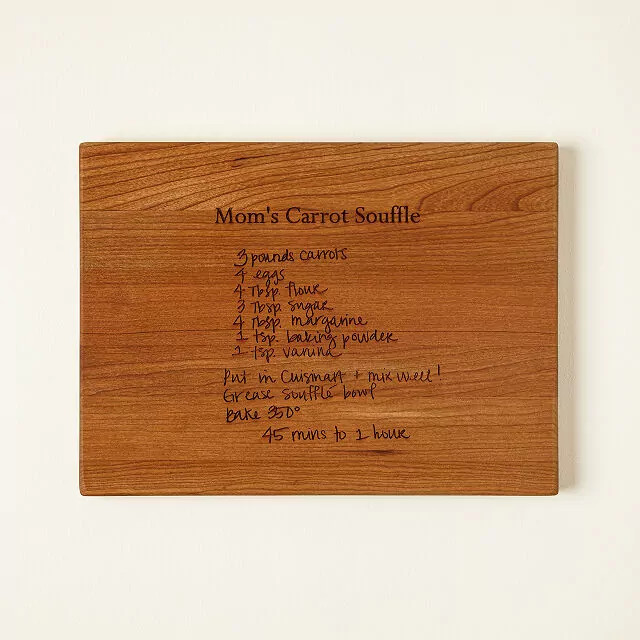 Mom's Carrot Souffle
3 pounds carrots
4 eggs
4 Tbsp. flour
3 Tbsp. sugar
4 Tbsp. margarine
1 tsp. baking powder
1 tsp. vanilla
Put in Cuisinart + mix well!
Grease soufflé bowl
Bake 350°
45 mins to 1 hour